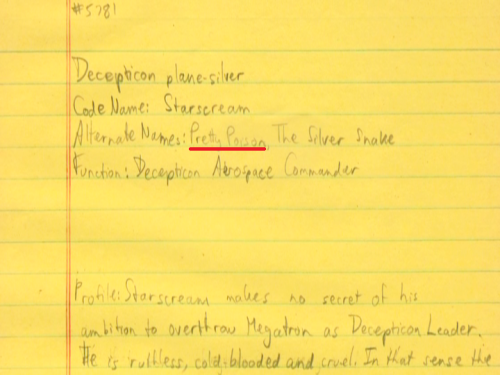 #5781
Decepticon plane-silver
Code Name: Starscream
Alternate Names: Pretty Poison, The Silver Snake
Function: Decepticon Aerospace Commander
Profile: Starscream makes no secret of his
ambition to overthrow Megatron as Decepticon Leader.
He is ruthless, cold-blooded and cruel. In that sense the